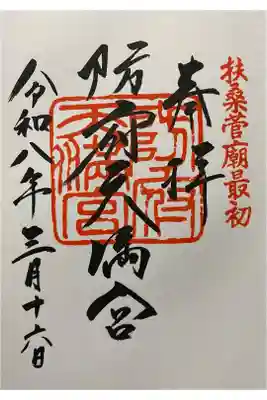 扶桑菅廟最初
奉拝
防府天満宮
令和八年三月十六日